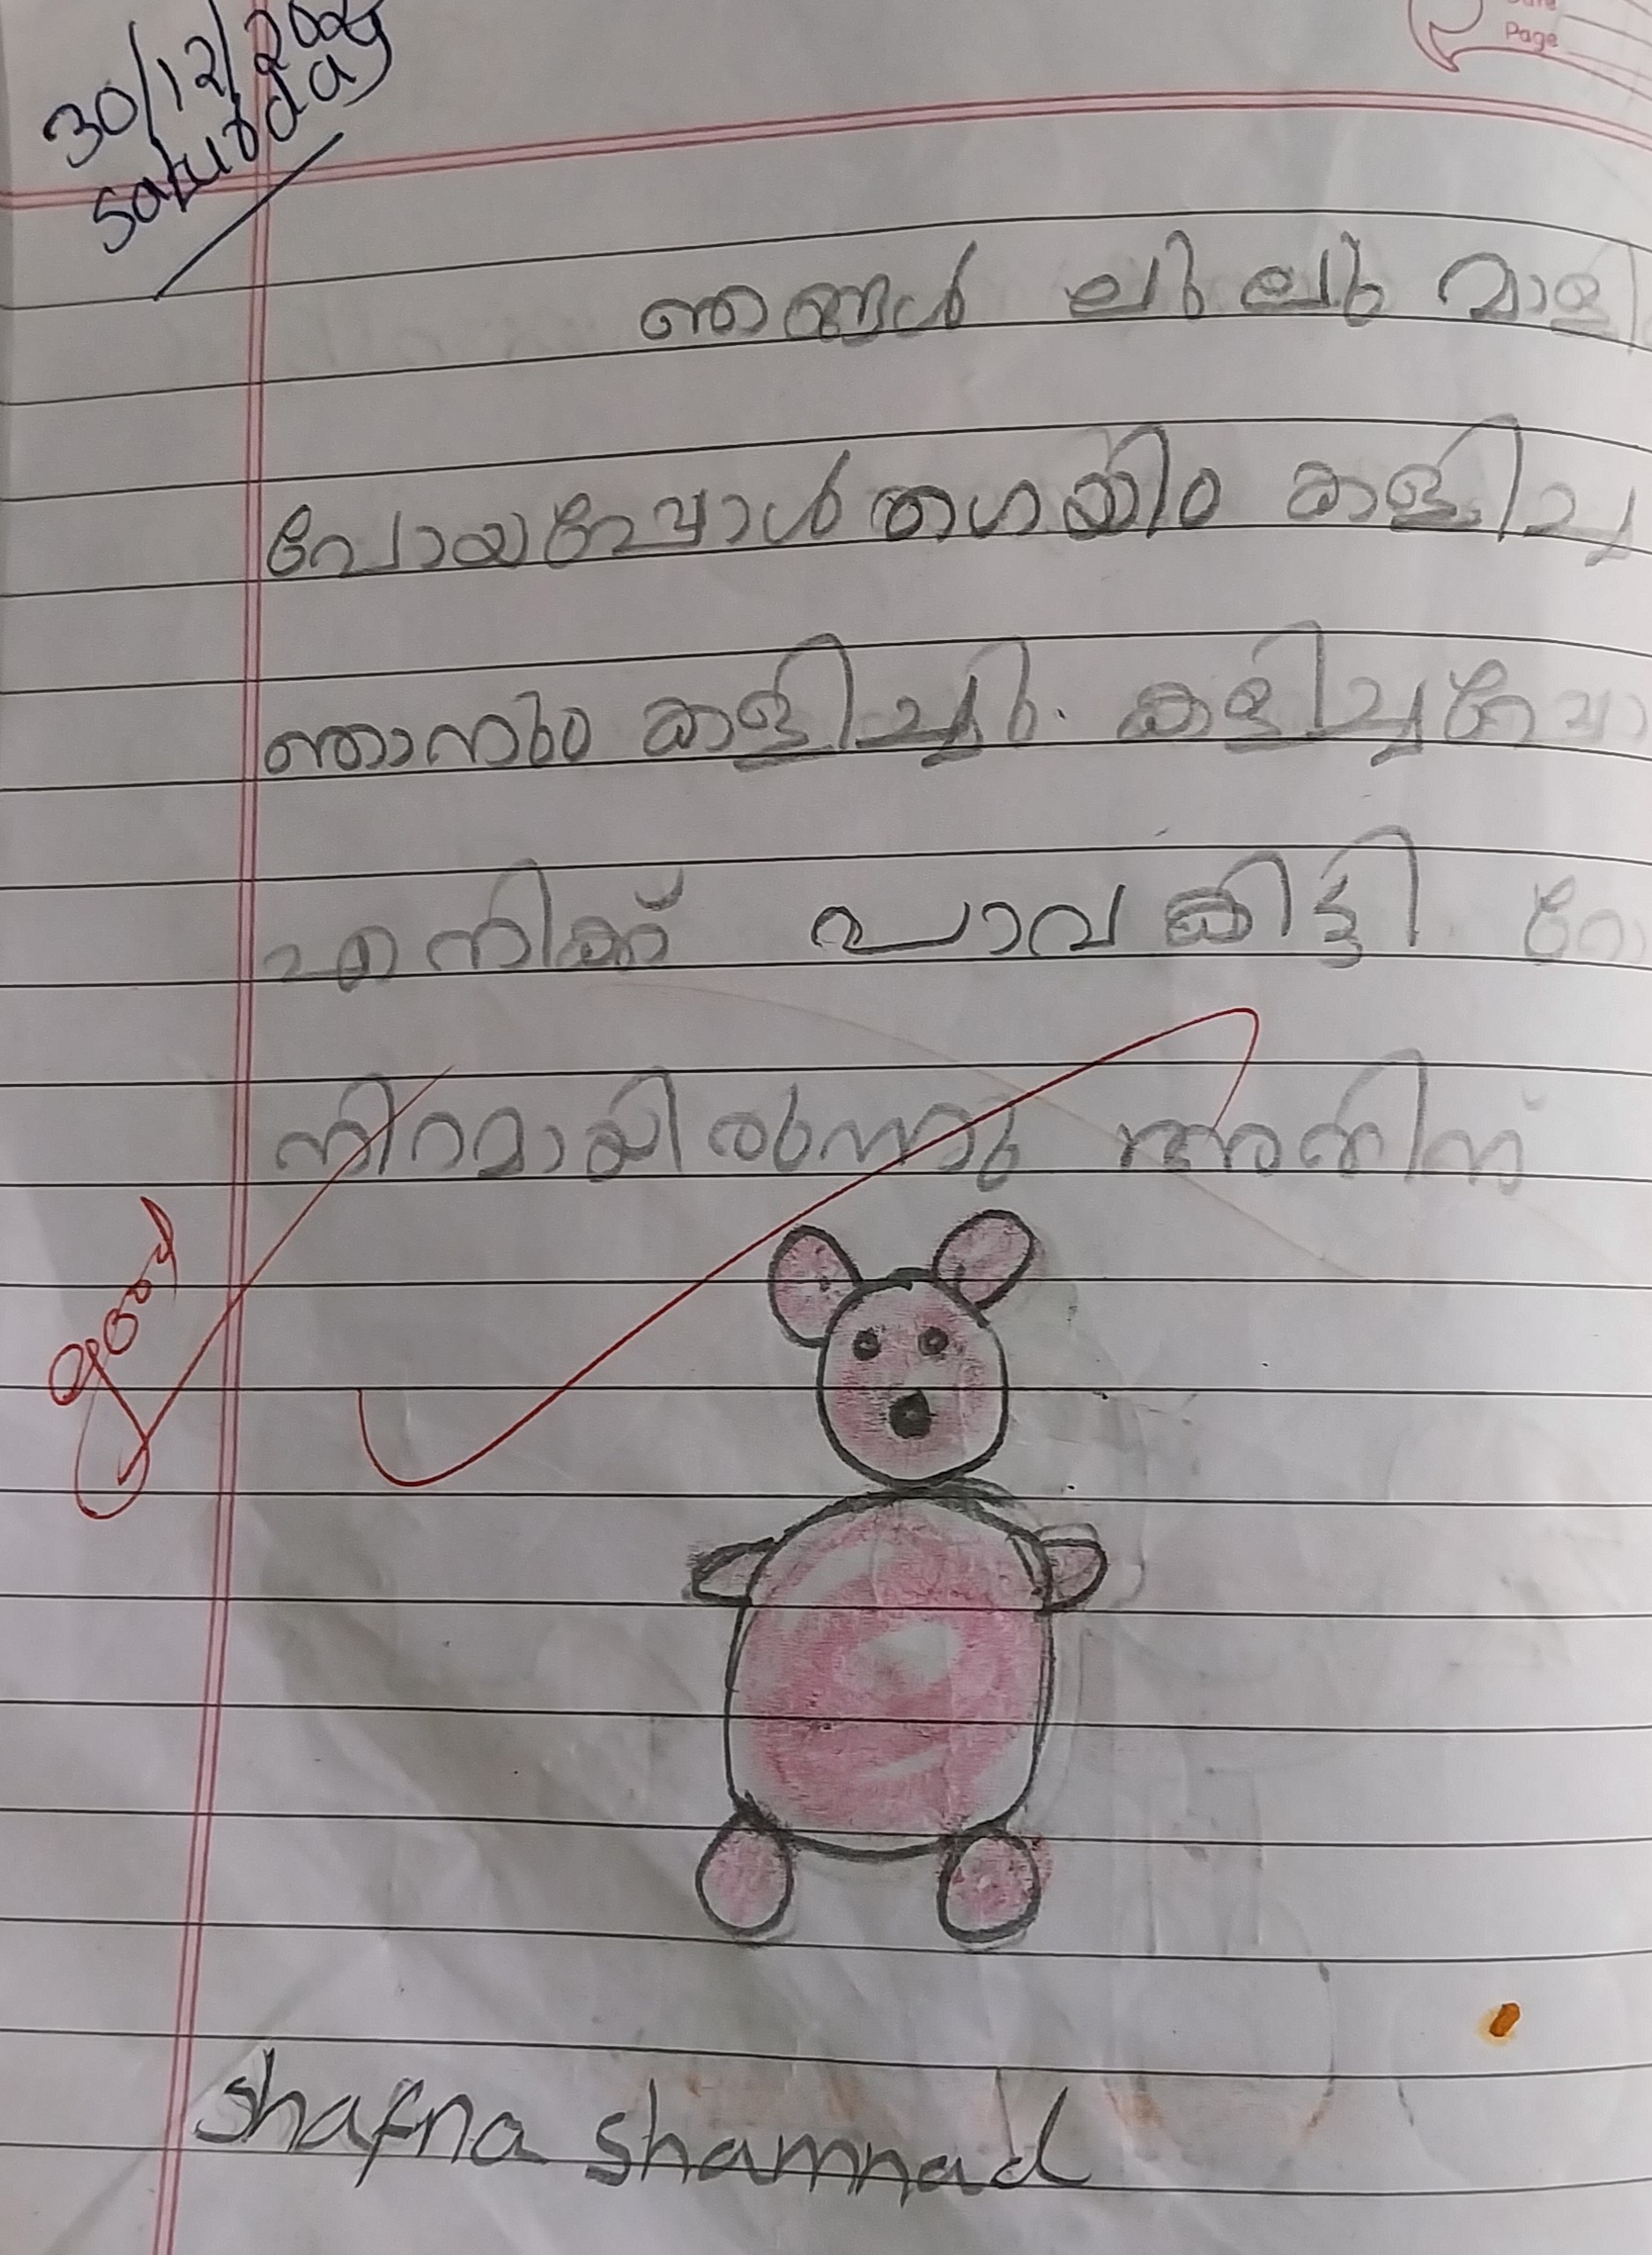 Page
30/12/2023
saturday
ഞങ്ങൾ ലുലു മാളി
പോയപ്പോൾ ഗെയിം കളിച്ചു
ഞാനും കളിച്ചു. കളിച്ചപ്പോ
എനിക്ക് പാവ കിട്ടി
നിറമായിരുന്നു അതിന്
good
shafna shamnad